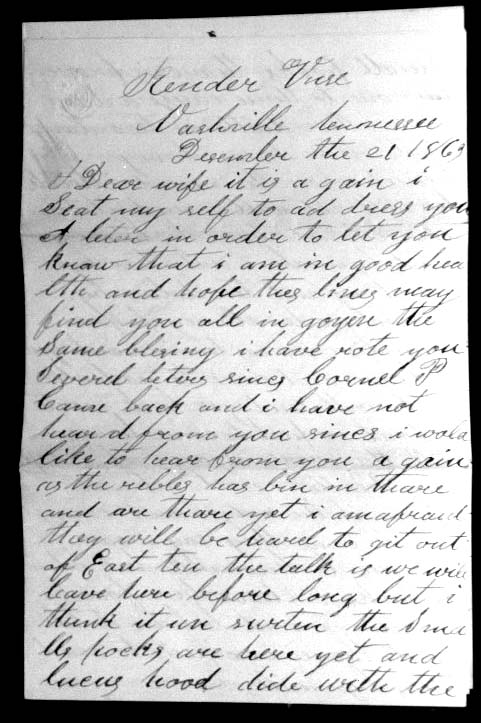 Render Vuse
Nashville tennessee
Desember the 21 1863
Dear wife it is a gain i
Seat my self to ad dress you
A leter in order to let you
know that i am in good hea
lth and hope thes lines may
find you all in goyen the
Same blesing i have rote you
Severel leters sines Cornel P
Came back and i have not
heard from you sines i would
like to hear from you a gain
as the rebles has bin in thare
and are thare yet i am afraid
they will be hard to git out
of East ten the talk is we will
leave here before long but i
think it un surten the Sma
lls pocks are here yet and
lucus hood dide with the